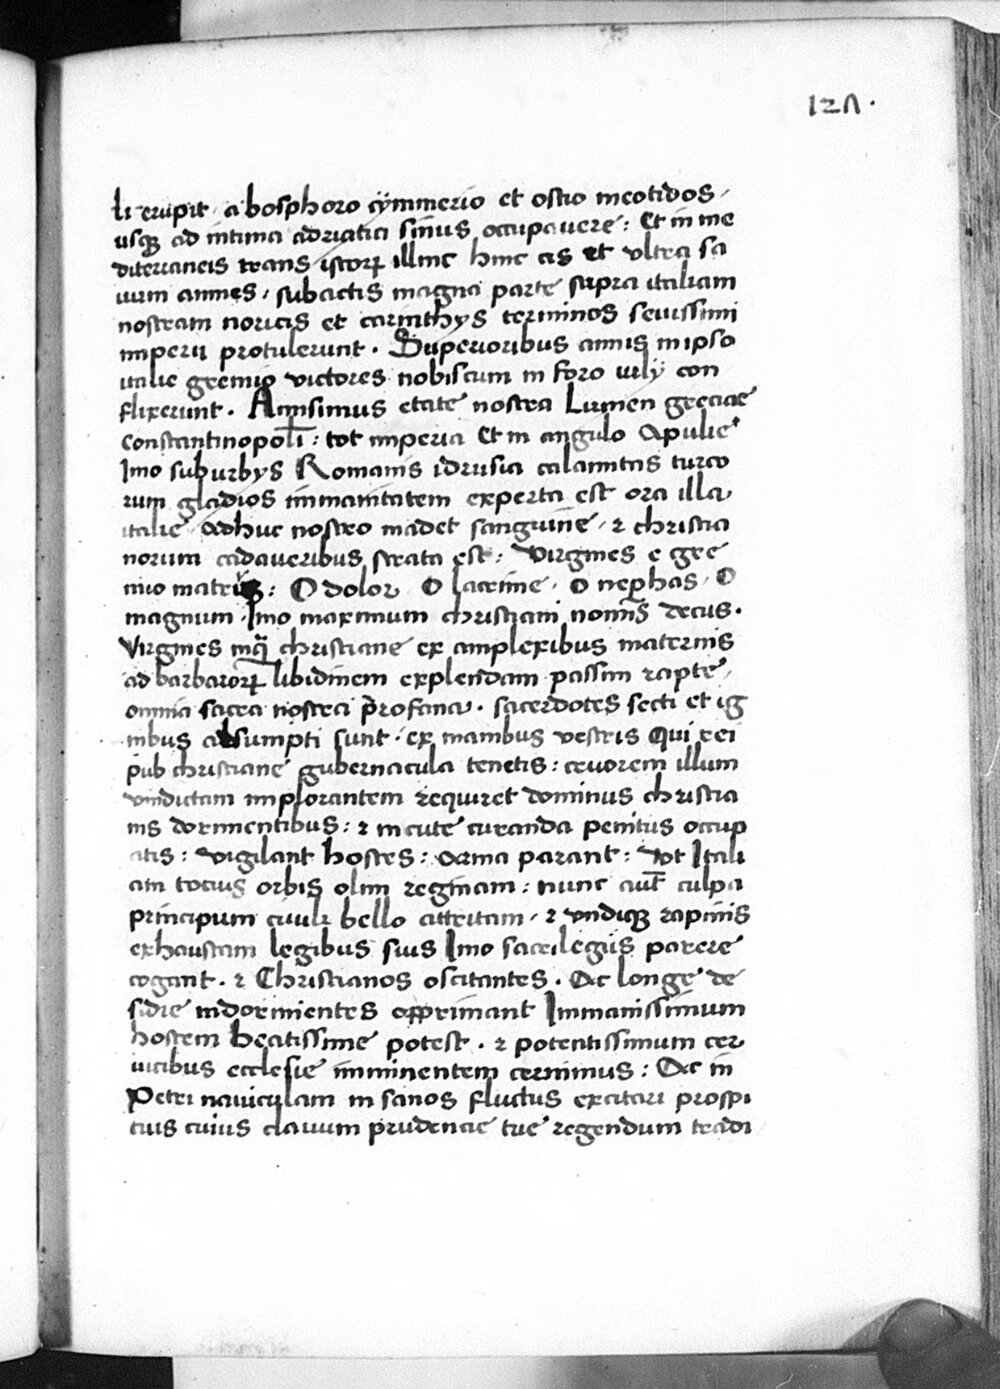 127.
li erupit a bosphoro cÿmmerio et ostio meotidos
usqꝫ ad intima adriatici sinus occupavere: Et in me
diterraneis trans istorꝝ illinc hinc cis et vltra sa
uum amnes, subactis magna parte supra italiam
nostram noricis et carinthÿs terminos seuissimi
imperii protulerunt. Superioribus annis in ipso
italie gremio victores nobiscum in foro iulÿ con
flixerunt. Amisimus etate nostra Lumen greciae
constantinopolī: tot imperia Et in angulo Apulie
Imo suburbÿs Romanis idrusia calamitas turco
rum gladios immanitatem experta est ora illa
italie adhuc nostro madet sanguine ⁊ christia
norum cadaveribus strata est: Virgines e gre
mio matris: O dolor O lacrime O nephas O
magnum Imo maximum christiani nomīs decus.
Virgines inqꝫ christiane ex amplexibus maternis
ad barbarorꝝ libidinem explendam passim rapte
omnia sacra nostra p̄rofana. sacerdotes secti et ig
nibus absumpti sunt. ex manibus vestris Qui rei
pub christiane gubernacula tenetis: cruorem illum
vindictam implorantem requiret dominus christia
nis dormientibus: ⁊ in cute curanda penitus occup
atis: vigilant hostes: Arma parant: vt Itali
am tocius orbis olim reginam: nunc aut̄ culpa
principum ciuili bello attritam ⁊ vndiqꝫ rapinis
exhaustam legibus suis Imo sacrilegiis parere
cogant. ⁊ Christianos oscitantes. Ac longe de
sidie indormientes opprimant Immanissimum
hostem beatissime potest. ⁊ potentissimum cer
uicibus ecclesie imminentem cernimus: Ac in
Petri naviculam in sanos fluctus excitari prospi
cius cuius clauum prudencie tue regendum tradi